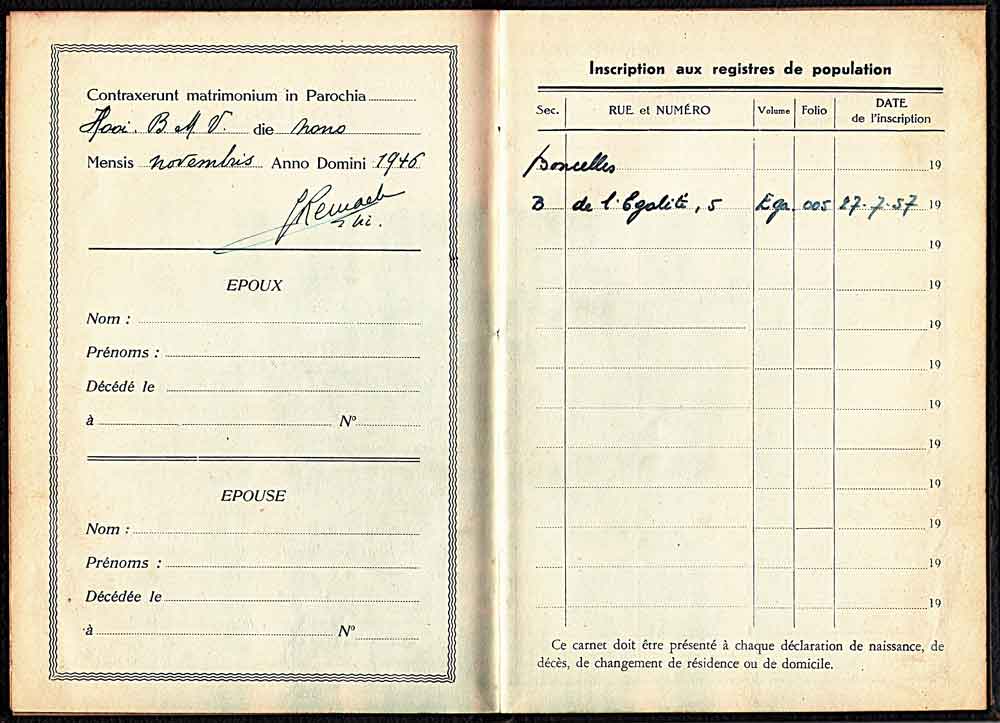 Contraxerunt matrimonium in Parochia
B. M V. die nono
Mensis novembris Anno Domini 1946
EPOUX
Nom :
Prénoms :
Décédé le
à Nº
EPOUSE
Nom :
Prénoms :
Décédée le
à Nº
Inscription aux registres de population
Sec. RUE et NUMÉRO Volume Folio DATE de l'inscription
19
B de l'Egalité, 5 Ega 005 27.7.57 19
19
19
19
19
19
19
19
19
19
19
Ce carnet doit être présenté à chaque déclaration de naissance, de
décès, de changement de résidence ou de domicile.